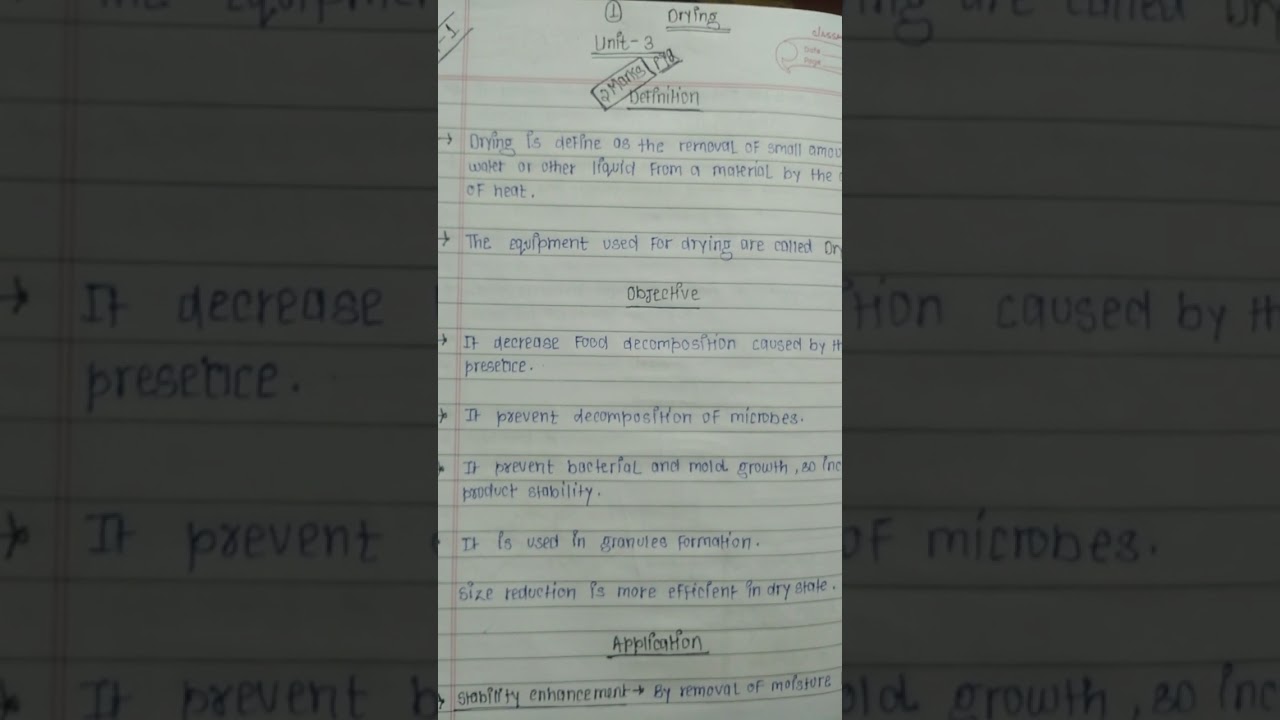 ① Drying
Unit-3
2 Marks
Definition
→ Drying is define as the removal of small
water or other liquid from a material by the
of heat.
→ The equipment used for drying are called
Objective
→ It decrease food decomposition caused by
presence.
→ It prevent decomposition of microbes.
It prevent bacterial and mold growth, so
product stability.
It is used in granules formation.
size reduction is more efficient in dry state.
Application
→ stability enhancement → By removal of moisture